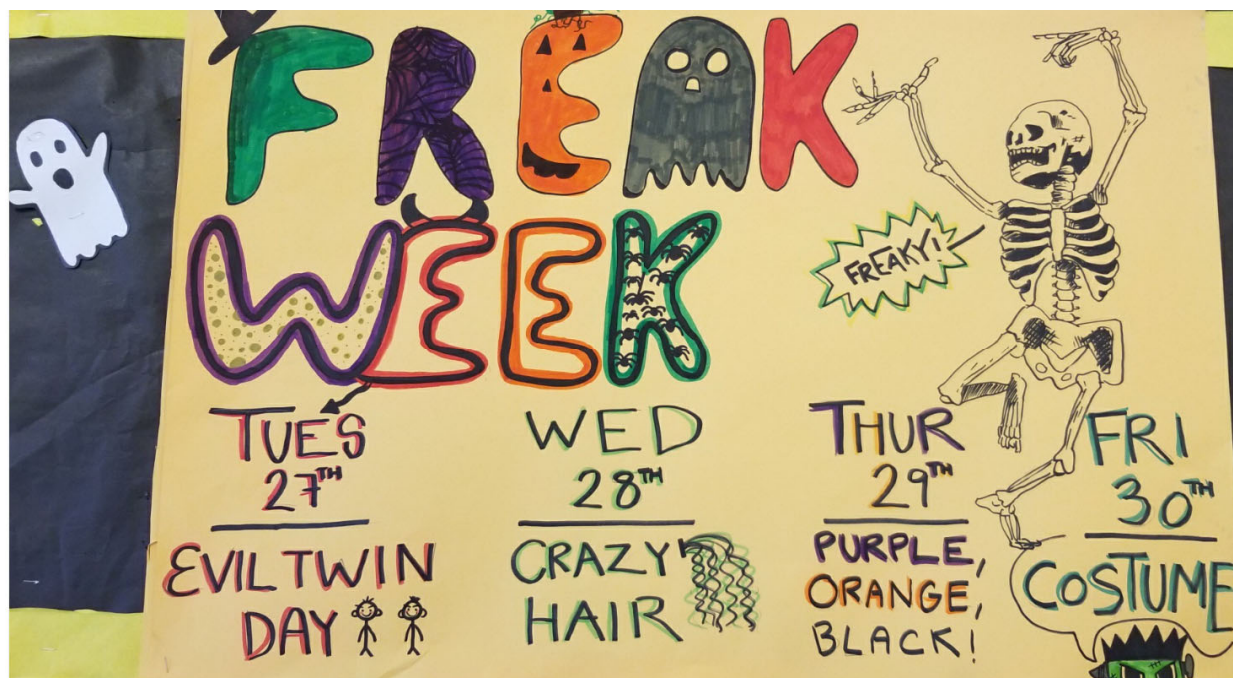 FREAK
WEEK
FREAKY!
TUES
27TH
EVIL TWIN
DAY
WED
28TH
CRAZY
HAIR
THUR
29TH
PURPLE,
ORANGE,
BLACK!
FRI
30TH
COSTUME